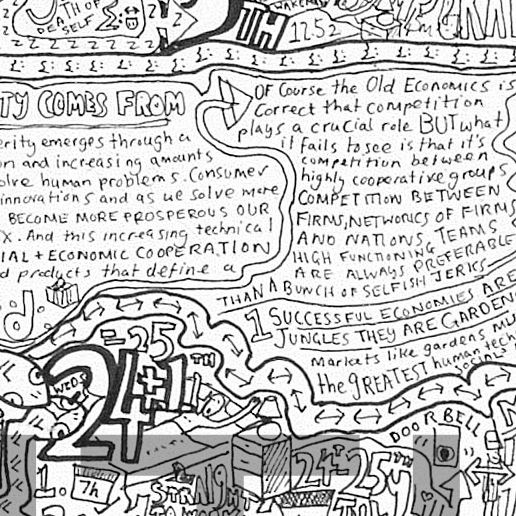 TH OF
DEATH OF
SELF
TH
12.52
£: £: £: £: £: £: £:
TY COMES FROM
erity emerges through a
on and increasing amounts
olve human problems. Consumer
innovations and as we solve more
BECOME MORE PROSPEROUS OUR
X. And this increasing technical
IAL + ECONOMIC COOPERATION
d products that define a
d.
OF COURSE the Old Economics is
Correct that competition
plays a crucial role BUT what
it fails to see is that it's
competition between
highly cooperative groups
COMPETITION BETWEEN
FIRMS, NETWORKS OF FIRMS
AND NATIONS. TEAMS
HIGH FUNCTIONING
ARE ALWAYS PREFERABLE
THAN A BUNCH OF SELFISH JERKS
1 SUCCESSFUL ECONOMIES ARE
JUNGLES THEY ARE GARDENS
Markets like gardens MU
the gREATEST human tech
SOCIALS
= 25TH
24+1TH
WEDS
DOOR BELL
1.
7h
STRAIGHT
TO WORK
24th 25TH
JULY